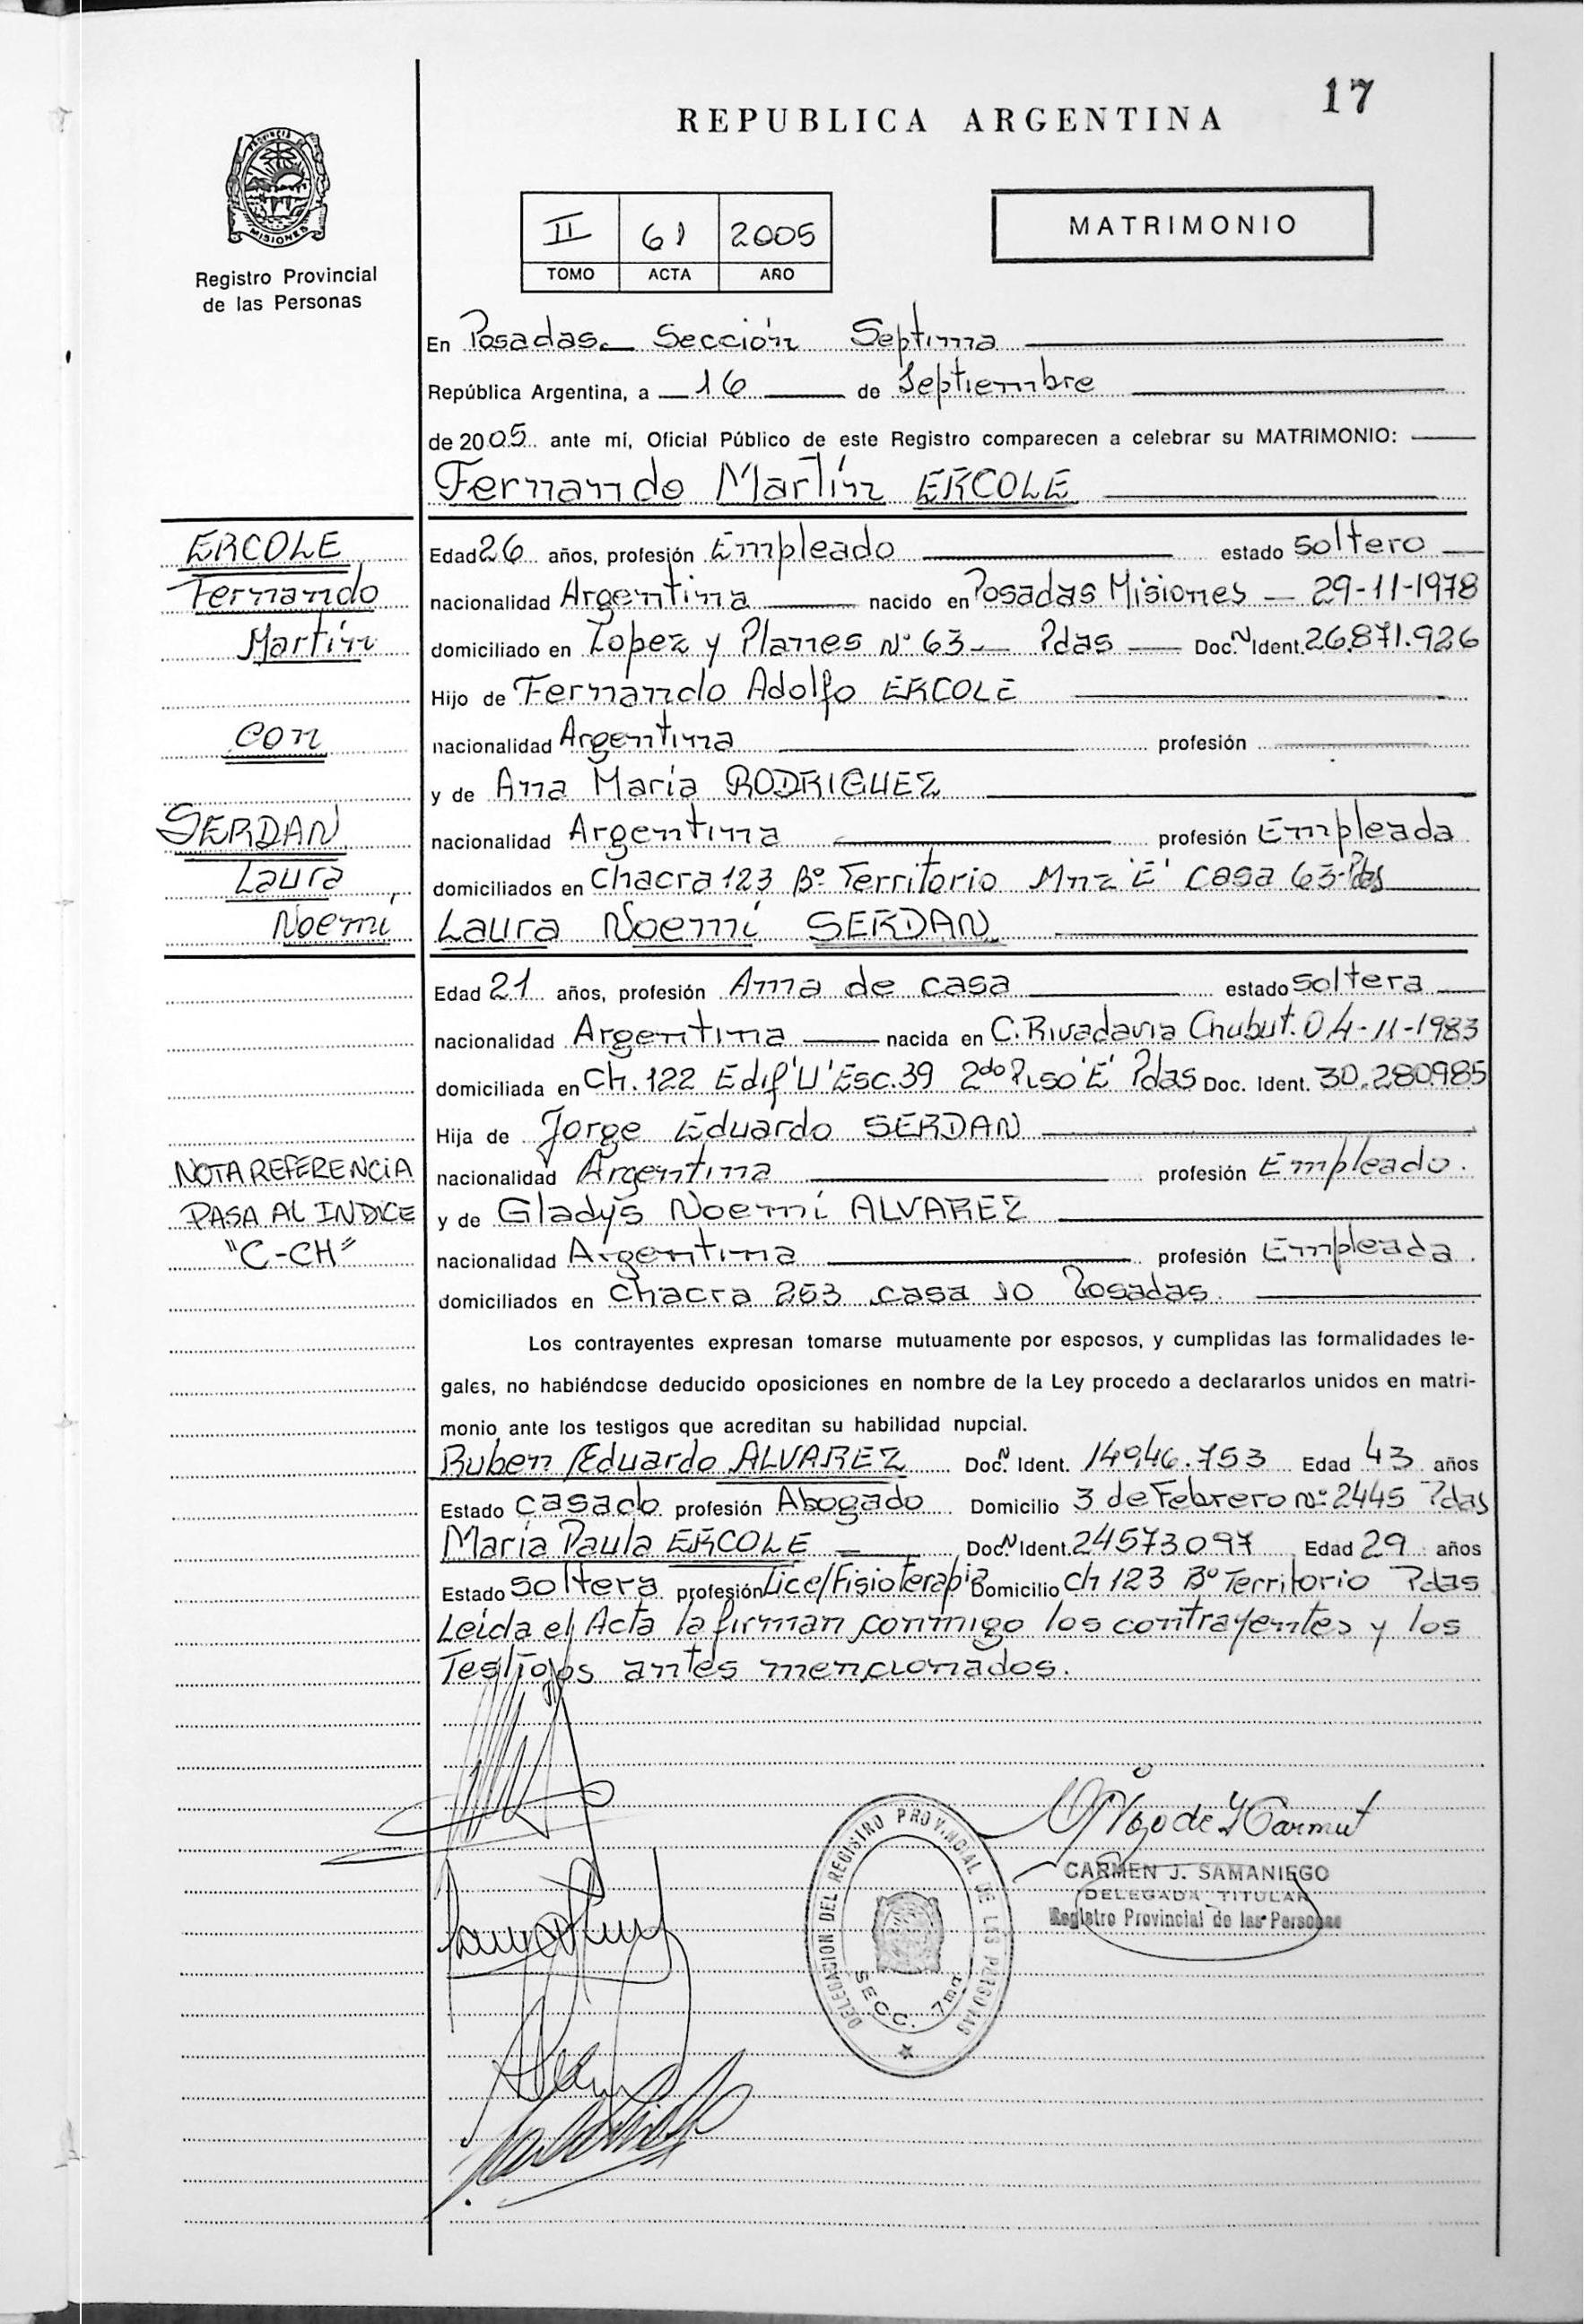 17
REPUBLICA ARGENTINA
MISIONES
Registro Provincial
de las Personas
II 61 2005
TOMO ACTA AÑO
MATRIMONIO
En Posadas. Sección Septima
República Argentina, a 16 de Septiembre
de 2005 ante mí, Oficial Público de este Registro comparecen a celebrar su MATRIMONIO:
Fernando Martín ERCOLE
ERCOLE
Fernando
Martín
con
SERDAN
Laura
Noemí
Edad 26 años, profesión Empleado estado soltero
nacionalidad Argentina nacido en Posadas Misiones - 29-11-1978
domiciliado en Lopez y Planes Nº 63 - Pdas - Doc. N Ident. 26.871.926
Hijo de Fernando Adolfo ERCOLE
nacionalidad Argentina profesión
y de Ana María RODRIGUEZ
nacionalidad Argentina profesión Empleada
domiciliados en Chacra 123 Bº Territorio Mnz 'E' casa 63-Pdas
Laura Noemí SERDAN
Edad 21 años, profesión Ama de casa estado soltera
nacionalidad Argentina nacida en C. Rivadavia Chubut. 04-11-1983
domiciliada en Ch. 122 Edif 'U' Esc. 39 2do Piso 'E' Pdas Doc. Ident. 30.280.985
Hija de Jorge Eduardo SERDAN
nacionalidad Argentina profesión Empleado.
y de Gladys Noemí ALVAREZ
nacionalidad Argentina profesión Empleada.
domiciliados en Chacra 253 casa 10 Posadas.
NOTA REFERENCIA
PASA AL INDICE
"C-CH"
Los contrayentes expresan tomarse mutuamente por esposos, y cumplidas las formalidades le-
gales, no habiéndose deducido oposiciones en nombre de la Ley procedo a declararlos unidos en matri-
monio ante los testigos que acreditan su habilidad nupcial.
Ruben Eduardo ALVAREZ Doc. N Ident. 14.946.753 Edad 43 años
Estado casado profesión Abogado Domicilio 3 de Febrero nº 2445 Pdas
María Paula ERCOLE Doc. N Ident. 24573097 Edad 29 años
Estado soltera profesión Lice/Fisioterapia Domicilio Ch 123 Bº Territorio Pdas
Leida el Acta la firman conmigo los contrayentes y los
Testigos antes mencionados.
DELEGACION DEL REGISTRO PROVINCIAL DE LAS PERSONAS
SECC. 7ma
CARMEN J. SAMANIEGO
DELEGADA TITULAR
Registro Provincial de las Personas